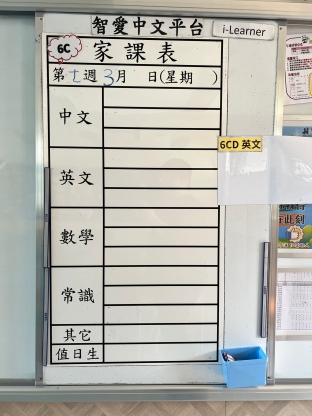 智愛中文平台
i-Learner
6C
家課表
第 週 3月 日(星期 )
中文
6CD 英文
英文
數學
常識
其它
值日生